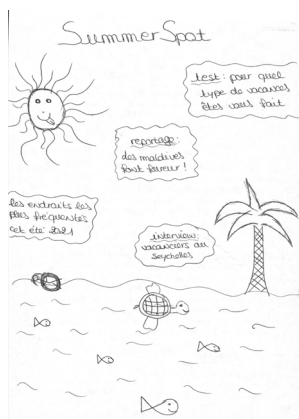 Summer Spot
test: pour quel
type de vacances
êtes vous fait
reportage:
des maldives
font fureur!
les endroits les
plus fréquentés
cet été 2021
interview:
vacanciers au
seychelles